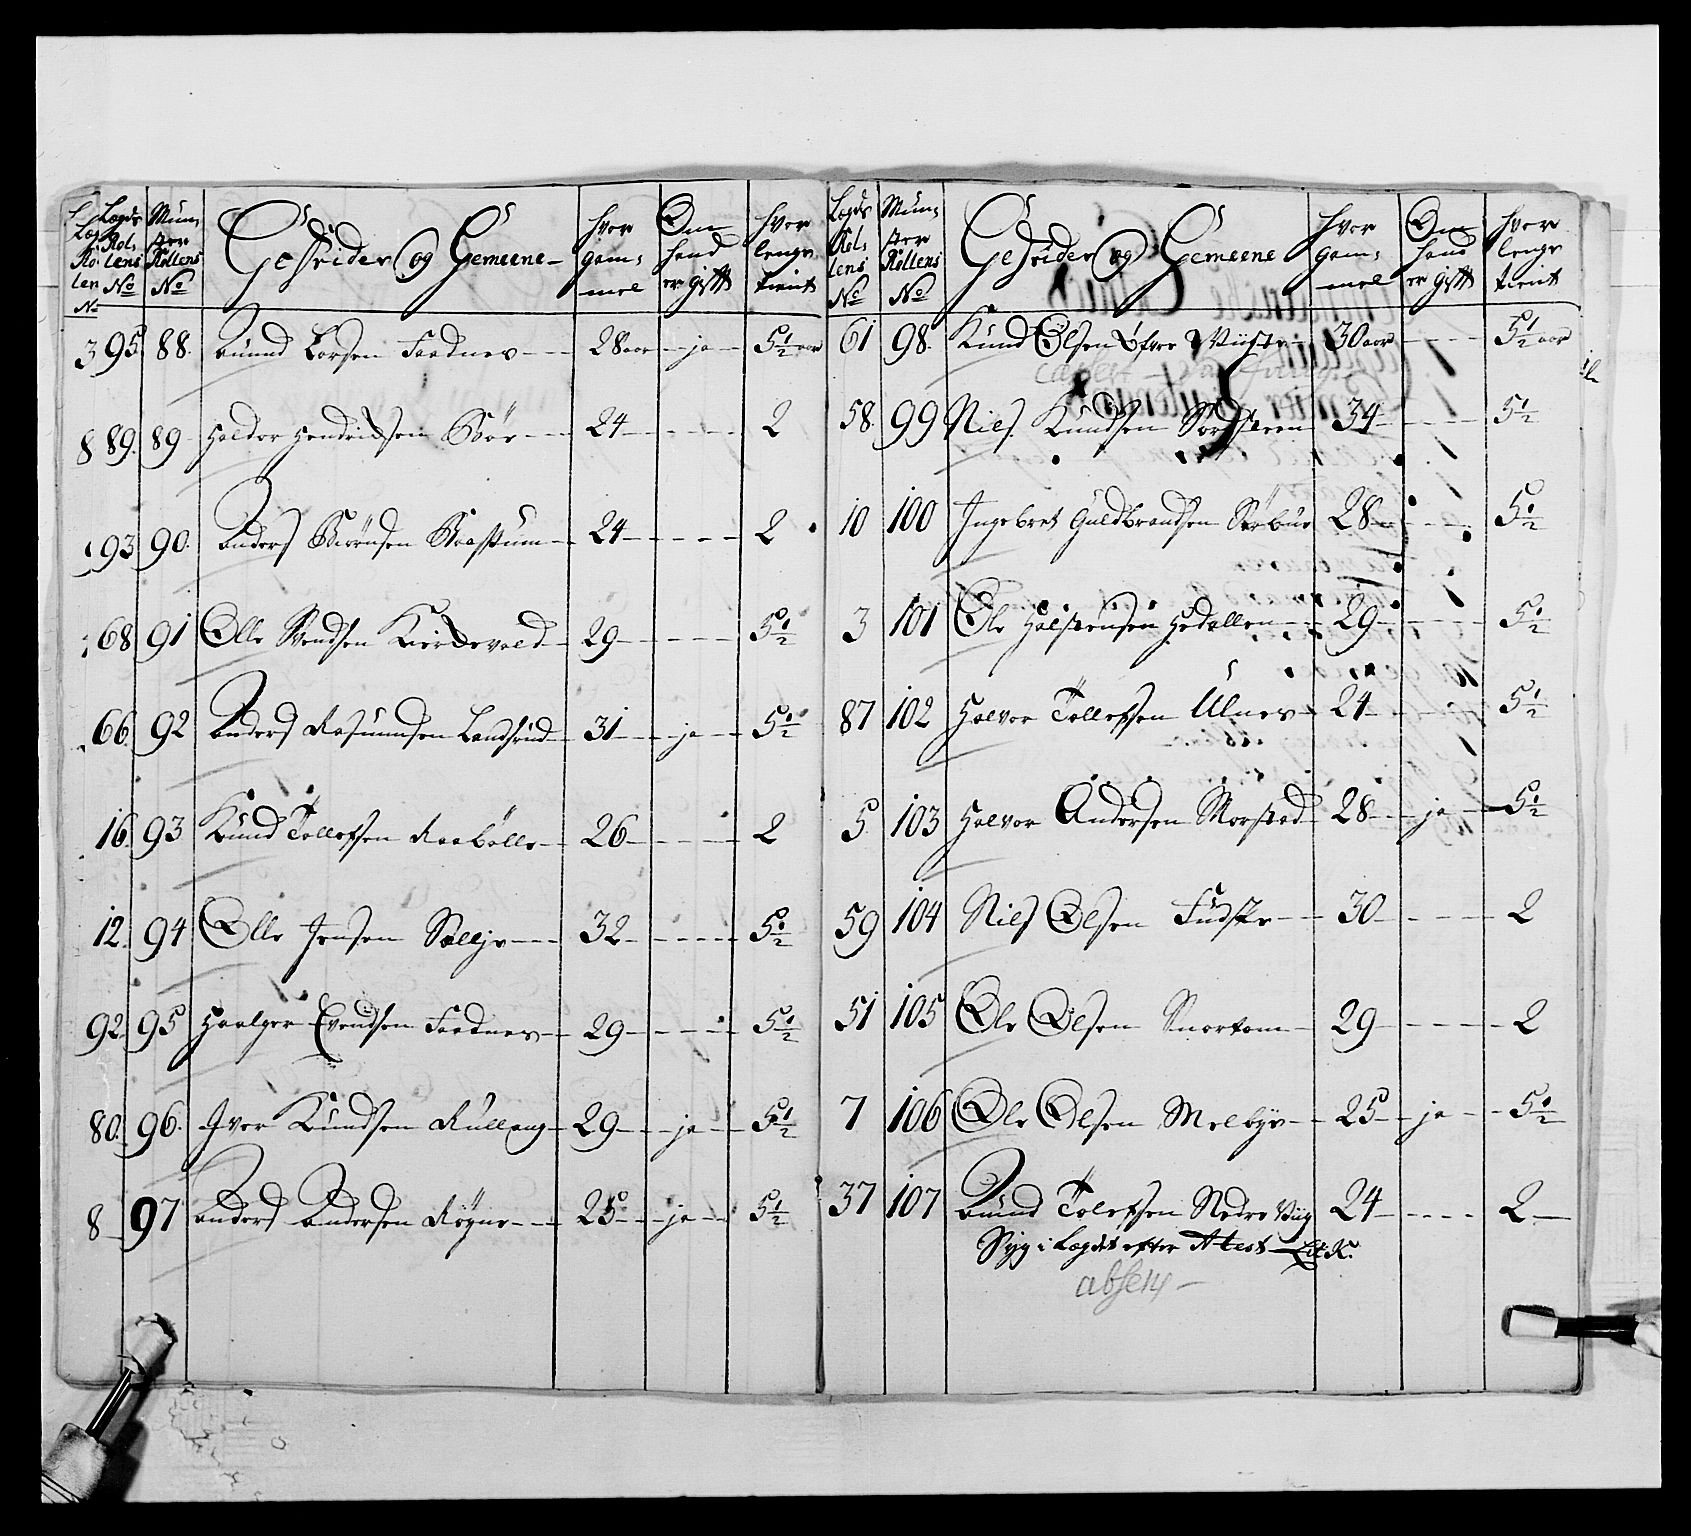 Lægds Rollens No | Munster Rollens No | Gefrider og Gemeene | hvor gammel | Om hand er gift | hvor lenge tient
95 | 88. | Amund Larsen Fodnes | 28 aar | ja | 5½ aar
89. | 89 | Haldor Hendrichsen Bøe | 24 | 2
93 | 90. | Anders Biørnsen | 24 | 2
68 | 91 | Olle Svendsen | 29 | 5½
66. | 92 | Anders Rasmusen Landsrud | 31 | ja | 5½
16. | 93 | Knud Tollefsen Raabölle | 26 | 2
12. | 94 | Olle Jensen Sælje | 32 | 5½
92. | 95 | Haalger Evendsen Fodnes | 29 | 5½
80. | 96. | Iver Knudsen Rulleng | 29 | ja | 5½
8 | 97 | Anders Andersen Røgne | 25 | ja | 5½
Lægds Rollens No | Munster Rollens No | Gefrider og Gemeene | hvor gammel | Om hand er gift | hvor lenge tient
61 | 98. | Knud Olsen Øfre | 30 aar | 5½ aar
58. | 99 | Niels Knudsen | 34 | 5½
10 | 100 | Ingebret Guldbrandsen Sørbue | 28 | 5½
3 | 101 | Ole Halstensen Hedallen | 29 | 5½
87 | 102 | Halvor Tollefsen Ulnes | 24 | 5½
5 | 103 | Halvor Andersen Mørstad | 28 | ja | 5½
59 | 104 | Niels Olsen | 30 | 2
51 | 105 | Ole Olsen Snortom | 29 | 2
7 | 106 | Ole Olsen Melbye | 25 | ja | 5½
37 | 107 | Amund Tolefsen Nedre Viig | 24 | 2
Syg i Lægdet efter Atest
absens